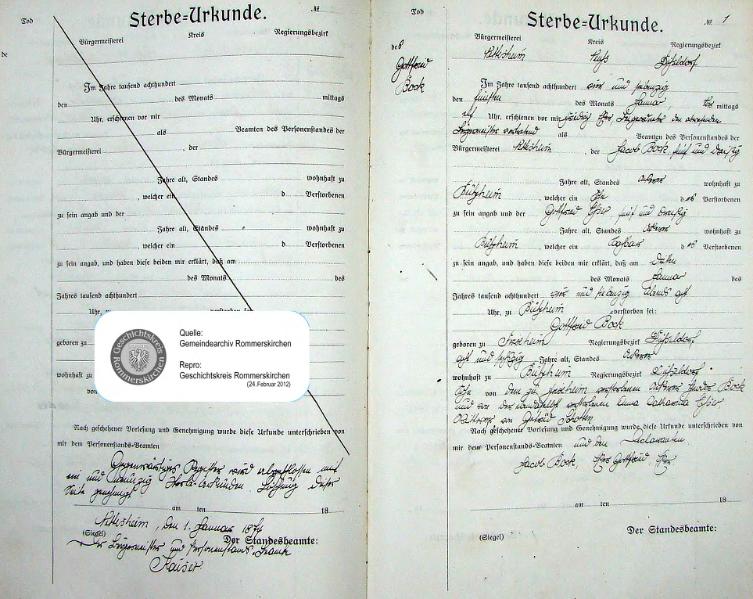 Tod
Sterbe=Urkunde.
№
Bürgermeisterei Kreis Regierungsbezirk
Im Jahre tausend achthundert
den des Monats mittags
Uhr, erschienen vor mir
als Beamten des Personenstandes der
Bürgermeisterei , der
Jahre alt, Standes wohnhaft zu
, welcher ein d Verstorbenen
zu sein angab und der
Jahre alt, Standes wohnhaft zu
welcher ein d Verstorbenen
zu sein angab, und haben diese beiden mir erklärt, daß am
des Monats des
Jahres tausend achthundert
Uhr, zu verstorben sei:
geboren zu
wohnhaft zu
Quelle:
Gemeindearchiv Rommerskirchen
Repro:
Geschichtskreis Rommerskirchen
(24. Februar 2012)
Geschichtskreis Rommerskirchen
Nach geschehener Vorlesung und Genehmigung wurde diese Urkunde unterschrieben von
mir dem Personenstands-Beamten
Gegenwärtiges Register wird abgeschlossen mit
ein und Sterbe-Urkunden.
Seite genehmigt
am ten 18
Nettesheim, den 1. Januar 1874
(Siegel) Der Standesbeamte:
Der Bürgermeister und Personenstands-Beamte
Kaiser
Tod
des
Gottfried
Bock
Sterbe=Urkunde.
№ 1
Bürgermeisterei Kreis Regierungsbezirk
Nettesheim Neuß Düsseldorf
Im Jahre tausend achthundert vier und siebenzig
den fünften des Monats Januar mittags
Uhr, erschienen vor mir
Bürgermeister als Beamten des Personenstandes der
Bürgermeisterei Nettesheim , der Jacob Bock fünf und dreißig
Jahre alt, Standes Ackerer wohnhaft zu
Bützheim , welcher ein d Verstorbenen
zu sein angab und der Gottfried fünf und dreißig
Jahre alt, Standes Ackerer wohnhaft zu
Bützheim welcher ein Nachbar d Verstorbenen
zu sein angab, und haben diese beiden mir erklärt, daß am
des Monats Januar des
Jahres tausend achthundert vier und siebenzig Abends acht
Uhr, zu Bützheim verstorben sei:
Gottfried Bock
geboren zu Regierungsbezirk Düsseldorf
acht und Jahre alt, Standes Ackerer
wohnhaft zu Bützheim Regierungsbezirk Düsseldorf
von dem zu verstorbenen Ackerer Bock
und von der verstorbenen Anna Catharina
Wittwer von
Nach geschehener Vorlesung und Genehmigung wurde diese Urkunde unterschrieben von
mir dem Personenstands-Beamten und den Declaranten
Jacob Bock, Gottfried
am ten 18
(Siegel) Der Standesbeamte: